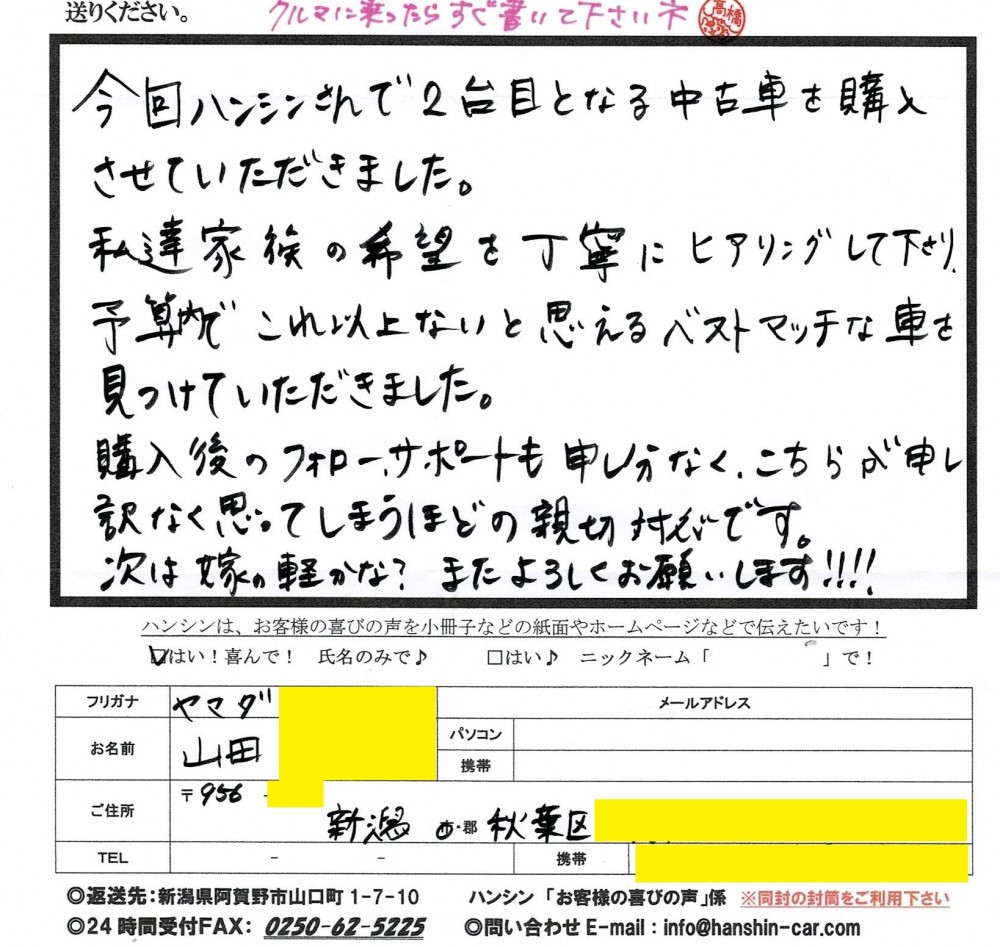 送りください。
クルマに乗ったらすぐ書いて下さいネ
高橋
今回ハンシンさんで2台目となる中古車を購入
させていただきました。
私達家族の希望を丁寧にヒアリングして下さり、
予算内でこれ以上ないと思えるベストマッチな車を
見つけていただきました。
購入後のフォロー、サポートも申し分なく、こちらが申し
訳なく思ってしまうほどの親切対応です。
次は嫁の軽かな？またよろしくお願いします!!!!
ハンシンは、お客様の喜びの声を小冊子などの紙面やホームページなどで伝えたいです！
☑はい！喜んで！ 氏名のみで♪ □はい♪ ニックネーム「 」で！
フリガナ ヤマダ メールアドレス
お名前 山田 パソコン
携帯
ご住所 〒956 -
新潟 市・郡 秋葉区
TEL - - 携帯
◎返送先：新潟県阿賀野市山口町1-7-10 ハンシン「お客様の喜びの声」係 ※同封の封筒をご利用下さい
◎24時間受付FAX： 0250-62-5225 ◎問い合わせE-mail：info@hanshin-car.com